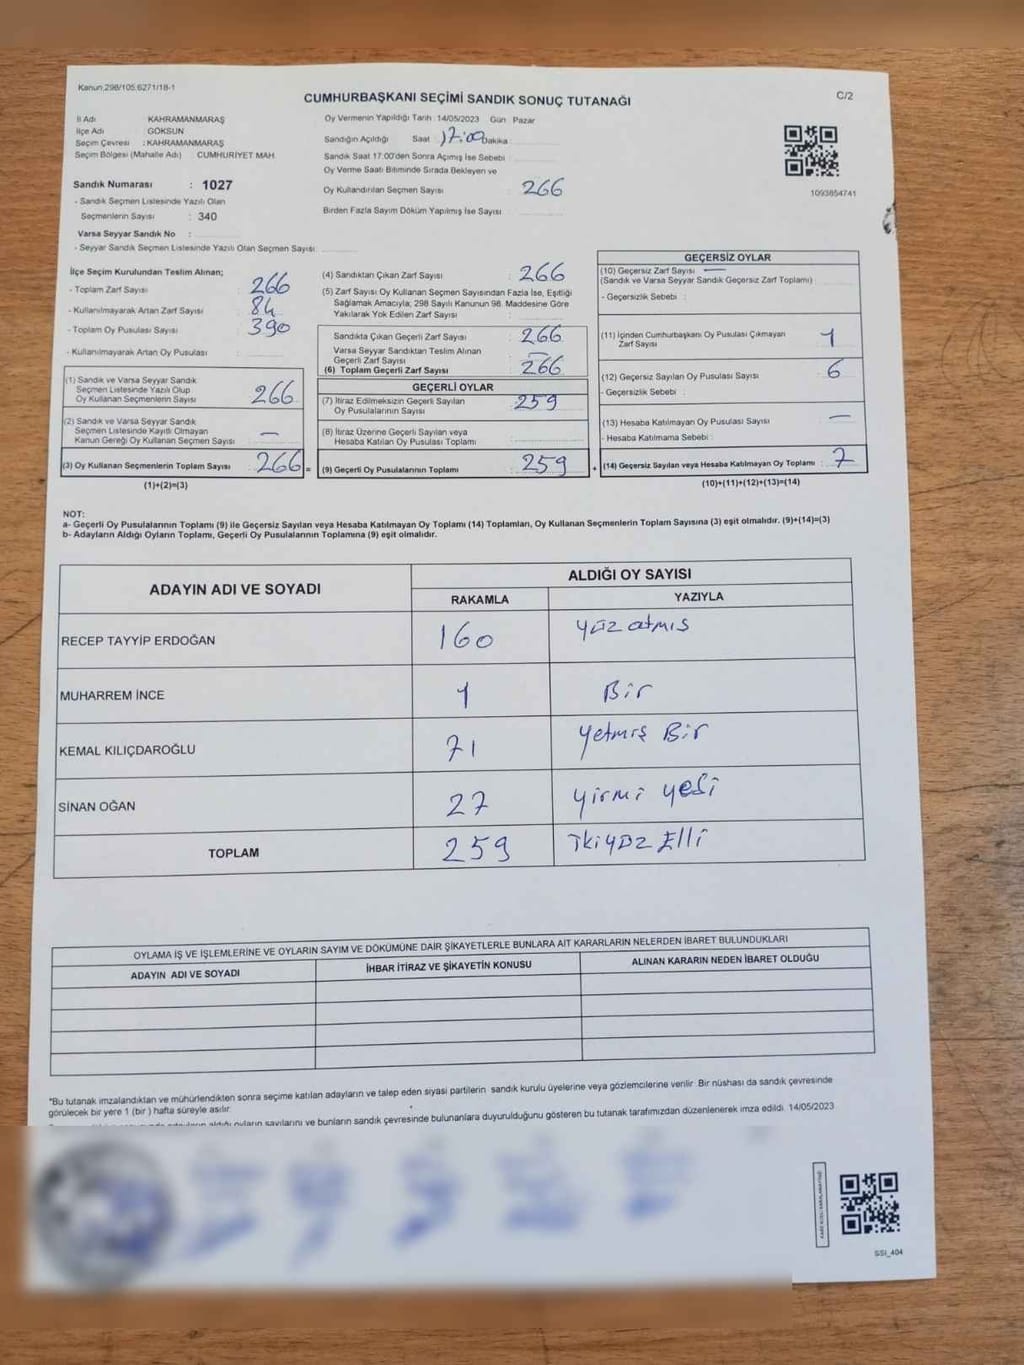 Kanun,298/105,6271/18-1
CUMHURBAŞKANI SEÇİMİ SANDIK SONUÇ TUTANAĞI
C/2
İl Adı KAHRAMANMARAŞ
İlçe Adı GÖKSUN
Seçim Çevresi : KAHRAMANMARAŞ
Seçim Bölgesi (Mahalle Adı) CUMHURİYET MAH.
Sandık Numarası : 1027
- Sandık Seçmen Listesinde Yazılı Olan
Seçmenlerin Sayısı : 340
Varsa Seyyar Sandık No :
- Seyyar Sandık Seçmen Listesinde Yazılı Olan Seçmen Sayısı:
Oy Vermenin Yapıldığı Tarih :14/05/2023 Gün Pazar
Sandığın Açıldığı Saat 17:00 Dakika :
Sandık Saat 17:00'den Sonra Açımış İse Sebebi :
Oy Verme Saati Bitiminde Sırada Bekleyen ve
Oy Kullandırılan Seçmen Sayısı : 266
Birden Fazla Sayım Döküm Yapılmış İse Sayısı :
1093854741
İlçe Seçim Kurulundan Teslim Alınan;
- Toplam Zarf Sayısı : 266
- Kullanılmayarak Artan Zarf Sayısı : 84
- Toplam Oy Pusulası Sayısı : 390
- Kullanılmayarak Artan Oy Pusulası :
(1) Sandık ve Varsa Seyyar Sandık
Seçmen Listesinde Yazılı Olup
Oy Kullanan Seçmenlerin Sayısı : 266
(2) Sandık ve Varsa Seyyar Sandık
Seçmen Listesinde Kayıtlı Olmayan
Kanun Gereği Oy Kullanan Seçmen Sayısı : —
(3) Oy Kullanan Seçmenlerin Toplam Sayısı : 266 =
(1)+(2)=(3)
(4) Sandıktan Çıkan Zarf Sayısı : 266
(5) Zarf Sayısı Oy Kullanan Seçmen Sayısından Fazla İse, Eşitliği
Sağlamak Amacıyla; 298 Sayılı Kanunun 98. Maddesine Göre
Yakılarak Yok Edilen Zarf Sayısı :
Sandıkta Çıkan Geçerli Zarf Sayısı : 266
Varsa Seyyar Sandıktan Teslim Alınan
Geçerli Zarf Sayısı : —
(6) Toplam Geçerli Zarf Sayısı : 266
GEÇERLİ OYLAR
(7) İtiraz Edilmeksizin Geçerli Sayılan
Oy Pusulalarının Sayısı : 259
(8) İtiraz Üzerine Geçerli Sayılan veya
Hesaba Katılan Oy Pusulası Toplamı :
(9) Geçerli Oy Pusulalarının Toplamı : 259 +
GEÇERSİZ OYLAR
(10) Geçersiz Zarf Sayısı : —
(Sandık ve Varsa Seyyar Sandık Geçersiz Zarf Toplamı)
- Geçersizlik Sebebi :
(11) İçinden Cumhurbaşkanı Oy Pusulası Çıkmayan
Zarf Sayısı : 1
(12) Geçersiz Sayılan Oy Pusulası Sayısı : 6
- Geçersizlik Sebebi :
(13) Hesaba Katılmayan Oy Pusulası Sayısı : —
- Hesaba Katılmama Sebebi :
(14) Geçersiz Sayılan veya Hesaba Katılmayan Oy Toplamı : 7
(10)+(11)+(12)+(13)=(14)
NOT:
a- Geçerli Oy Pusulalarının Toplamı (9) ile Geçersiz Sayılan veya Hesaba Katılmayan Oy Toplamı (14) Toplamları, Oy Kullanan Seçmenlerin Toplam Sayısına (3) eşit olmalıdır. (9)+(14)=(3)
b- Adayların Aldığı Oyların Toplamı, Geçerli Oy Pusulalarının Toplamına (9) eşit olmalıdır.
ADAYIN ADI VE SOYADI
ALDIĞI OY SAYISI
RAKAMLA YAZIYLA
RECEP TAYYİP ERDOĞAN 160 yüz atmış
MUHARREM İNCE 1 Bir
KEMAL KILIÇDAROĞLU 71 yetmiş Bir
SİNAN OĞAN 27 yirmi yedi
TOPLAM 259 ikiyüz Elli
OYLAMA İŞ VE İŞLEMLERİNE VE OYLARIN SAYIM VE DÖKÜMÜNE DAİR ŞİKAYETLERLE BUNLARA AİT KARARLARIN NELERDEN İBARET BULUNDUKLARI
ADAYIN ADI VE SOYADI İHBAR İTİRAZ VE ŞİKAYETİN KONUSU ALINAN KARARIN NEDEN İBARET OLDUĞU
*Bu tutanak imzalandıktan ve mühürlendikten sonra seçime katılan adayların ve talep eden siyasi partilerin sandık kurulu üyelerine veya gözlemcilerine verilir. Bir nüshası da sandık çevresinde
görülecek bir yere 1 (bir) hafta süreyle asılır.
aldığı oyların sayılarını ve bunların sandık çevresinde bulunanlara duyurulduğunu gösteren bu tutanak tarafımızdan düzenlenerek imza edildi. 14/05/2023
SSI_404